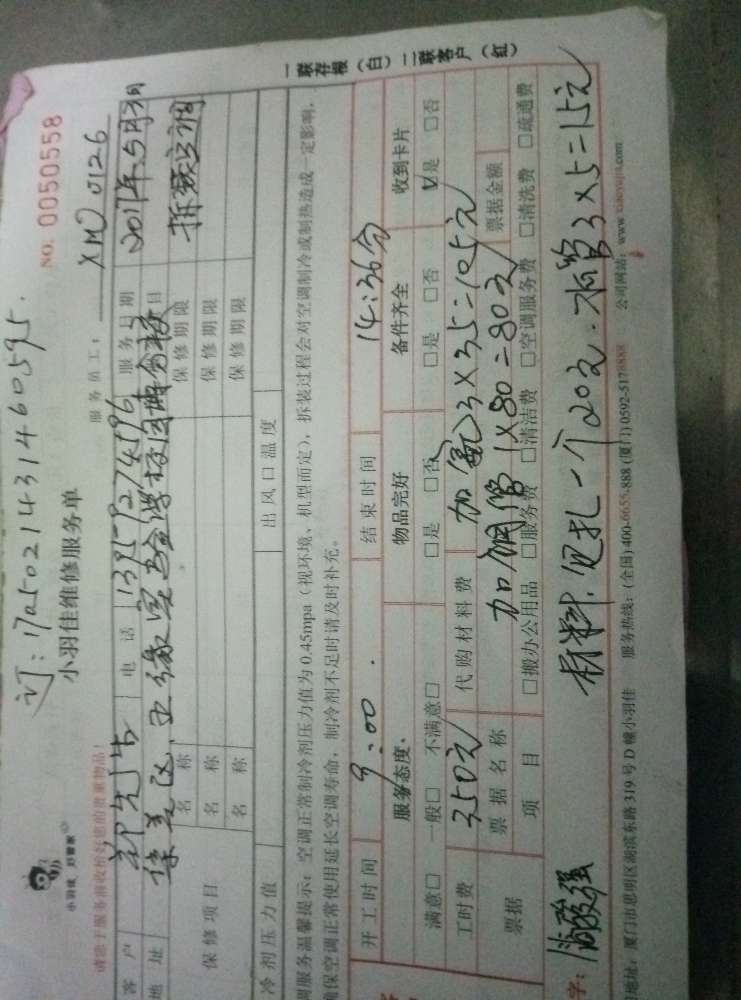 订:17050214314 60595.
小羽佳 好管家
小羽佳维修服务单
NO. 0050558
请您于服务前收检好您的贵重物品!
服务员工: XM0126
客户 郑先生 电话 13959274596 服务日期
地址 集美区, 实验学校 服务项目 拆装空调
保修项目 名称 保修期限
名称 保修期限
名称 保修期限
冷剂压力值 出风口温度
调服务温馨提示:空调正常制冷剂压力值为0.45mpa(视环境、机型而定),拆装过程会对空调制冷或制热造成一定影响,
确保空调正常使用延长空调寿命,制冷剂不足时请及时补充。
开工时间 9:00 结束时间 14:36分
服务态度 物品完好 备件齐全 收到卡片
满意□ 一般□ 不满意□ □是 □否 □是 □否 ☑是 □否
工时费 350元 代购材料费 加氟3×35=105元
加铜管1×80=80元
票据 票据名称 票据金额
项目 □搬办公用品 □服务费 □清洁费 □空调服务费 □清洗费 □疏通费
字: 材料,包扎一个20元.水管3×5=15元
地址:厦门市思明区湖滨东路319号D幢小羽佳 服务热线:(全国)400-6655-888 (厦门)0592-5178888 公司网站:www.xiaoyujia.com
一联存根(白)二联客户(红)